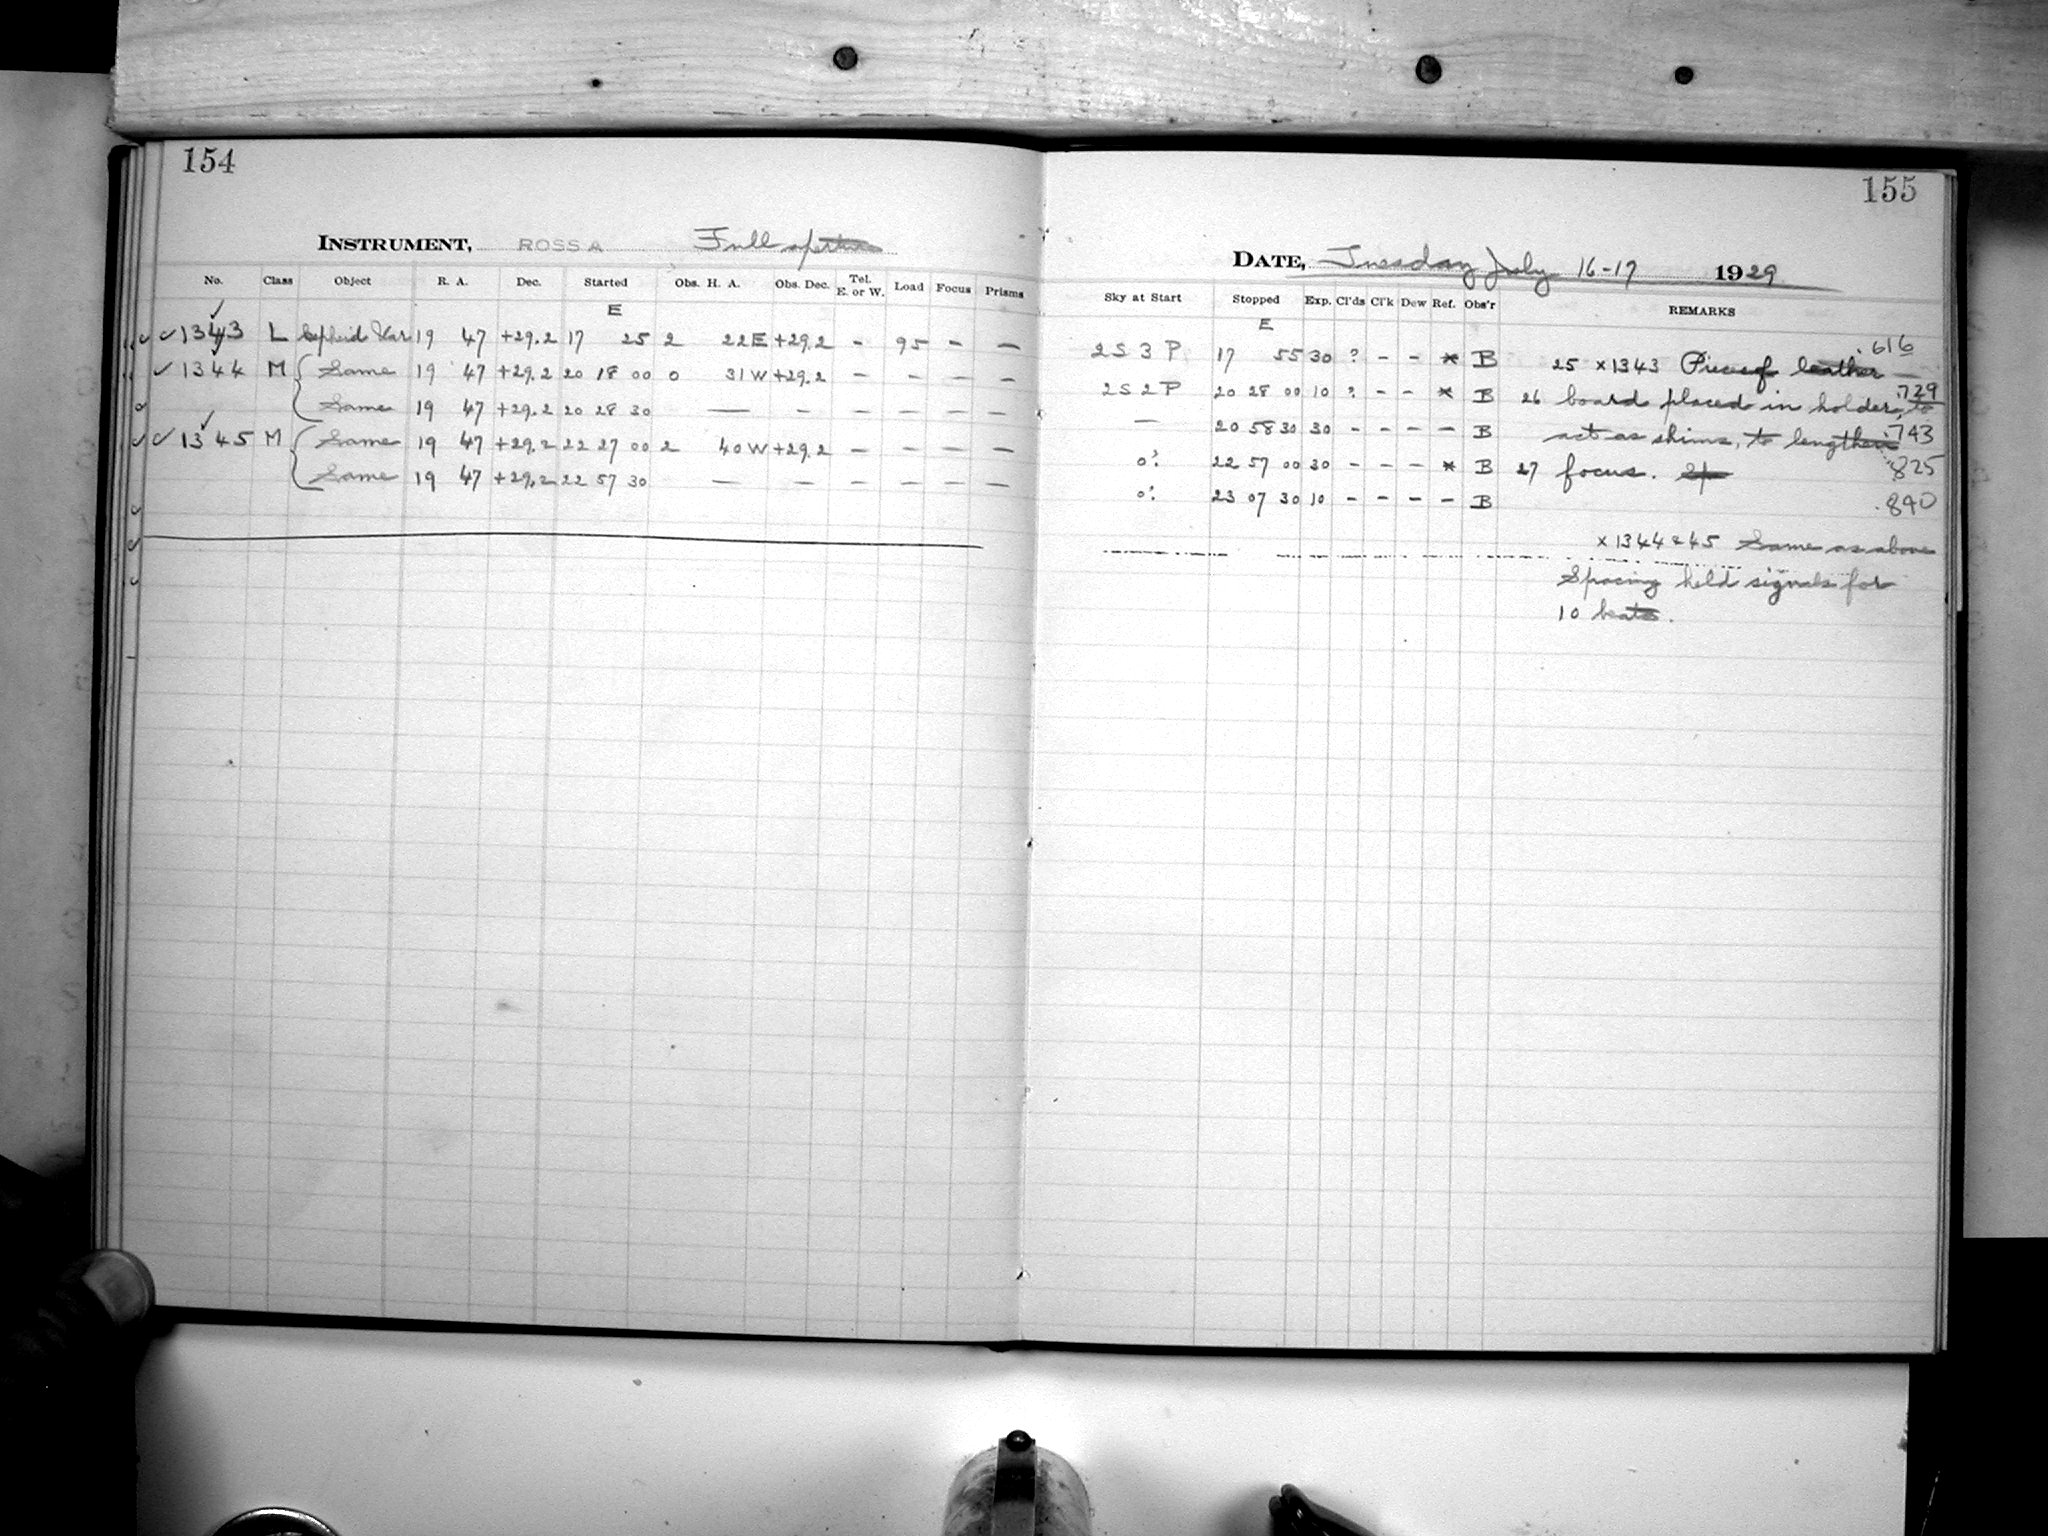 154
INSTRUMENT, ROSS A Full aperture
No. Class Object R. A. Dec. Started Obs. H. A. Obs. Dec. Tel. E. or W. Load Focus Prisms
E
1343 L Cepheid Var 19 47 +29.2 17 25 2 22E +29.2 - 95 - -
1344 M Same 19 47 +29.2 20 18 00 0 31W +29.2 - - - -
Same 19 47 +29.2 20 28 30 - - - - - -
1345 M Same 19 47 +29.2 22 27 00 2 40W +29.2 - - - -
Same 19 47 +29.2 22 57 30 - - - - - -
155
DATE, Tuesday July 16-17 1929
Sky at Start Stopped Exp. Cl'ds Cl'k Dew Ref. Obs'r REMARKS
E
.616
2S 3 P 17 55 30 ? - - * B 25 x1343 Pieces of leather
.729
2S 2 P 20 28 00 10 ? - - * B 26 board placed in holders, to
- 20 58 30 30 - - - - B act as shims, to lengthen .743
0? 22 57 00 30 - - - * B 27 focus. .825
0? 23 07 30 10 - - - - B .840
x1344 & 45 Same as above
Spacing held signals for
10 beats.